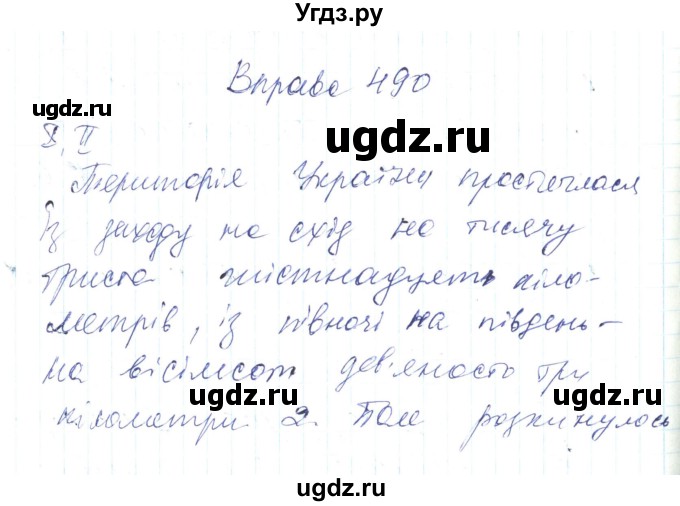 Угдз.ру
Вправа 490
ugdz.ru
ugdz.ru
ugdz.ru
I, II
Територія України простяглася
із заходу на схід на тисячу
ugdz.ru
ugdz.ru
триста шістнадцять кіло-
метрів, із півночі на південь –
на вісімсот дев'яносто три
ugdz.ru
ugdz.ru
ugdz.ru
кілометри 2. Поле розкинулось
ugdz.ru
ugdz.ru